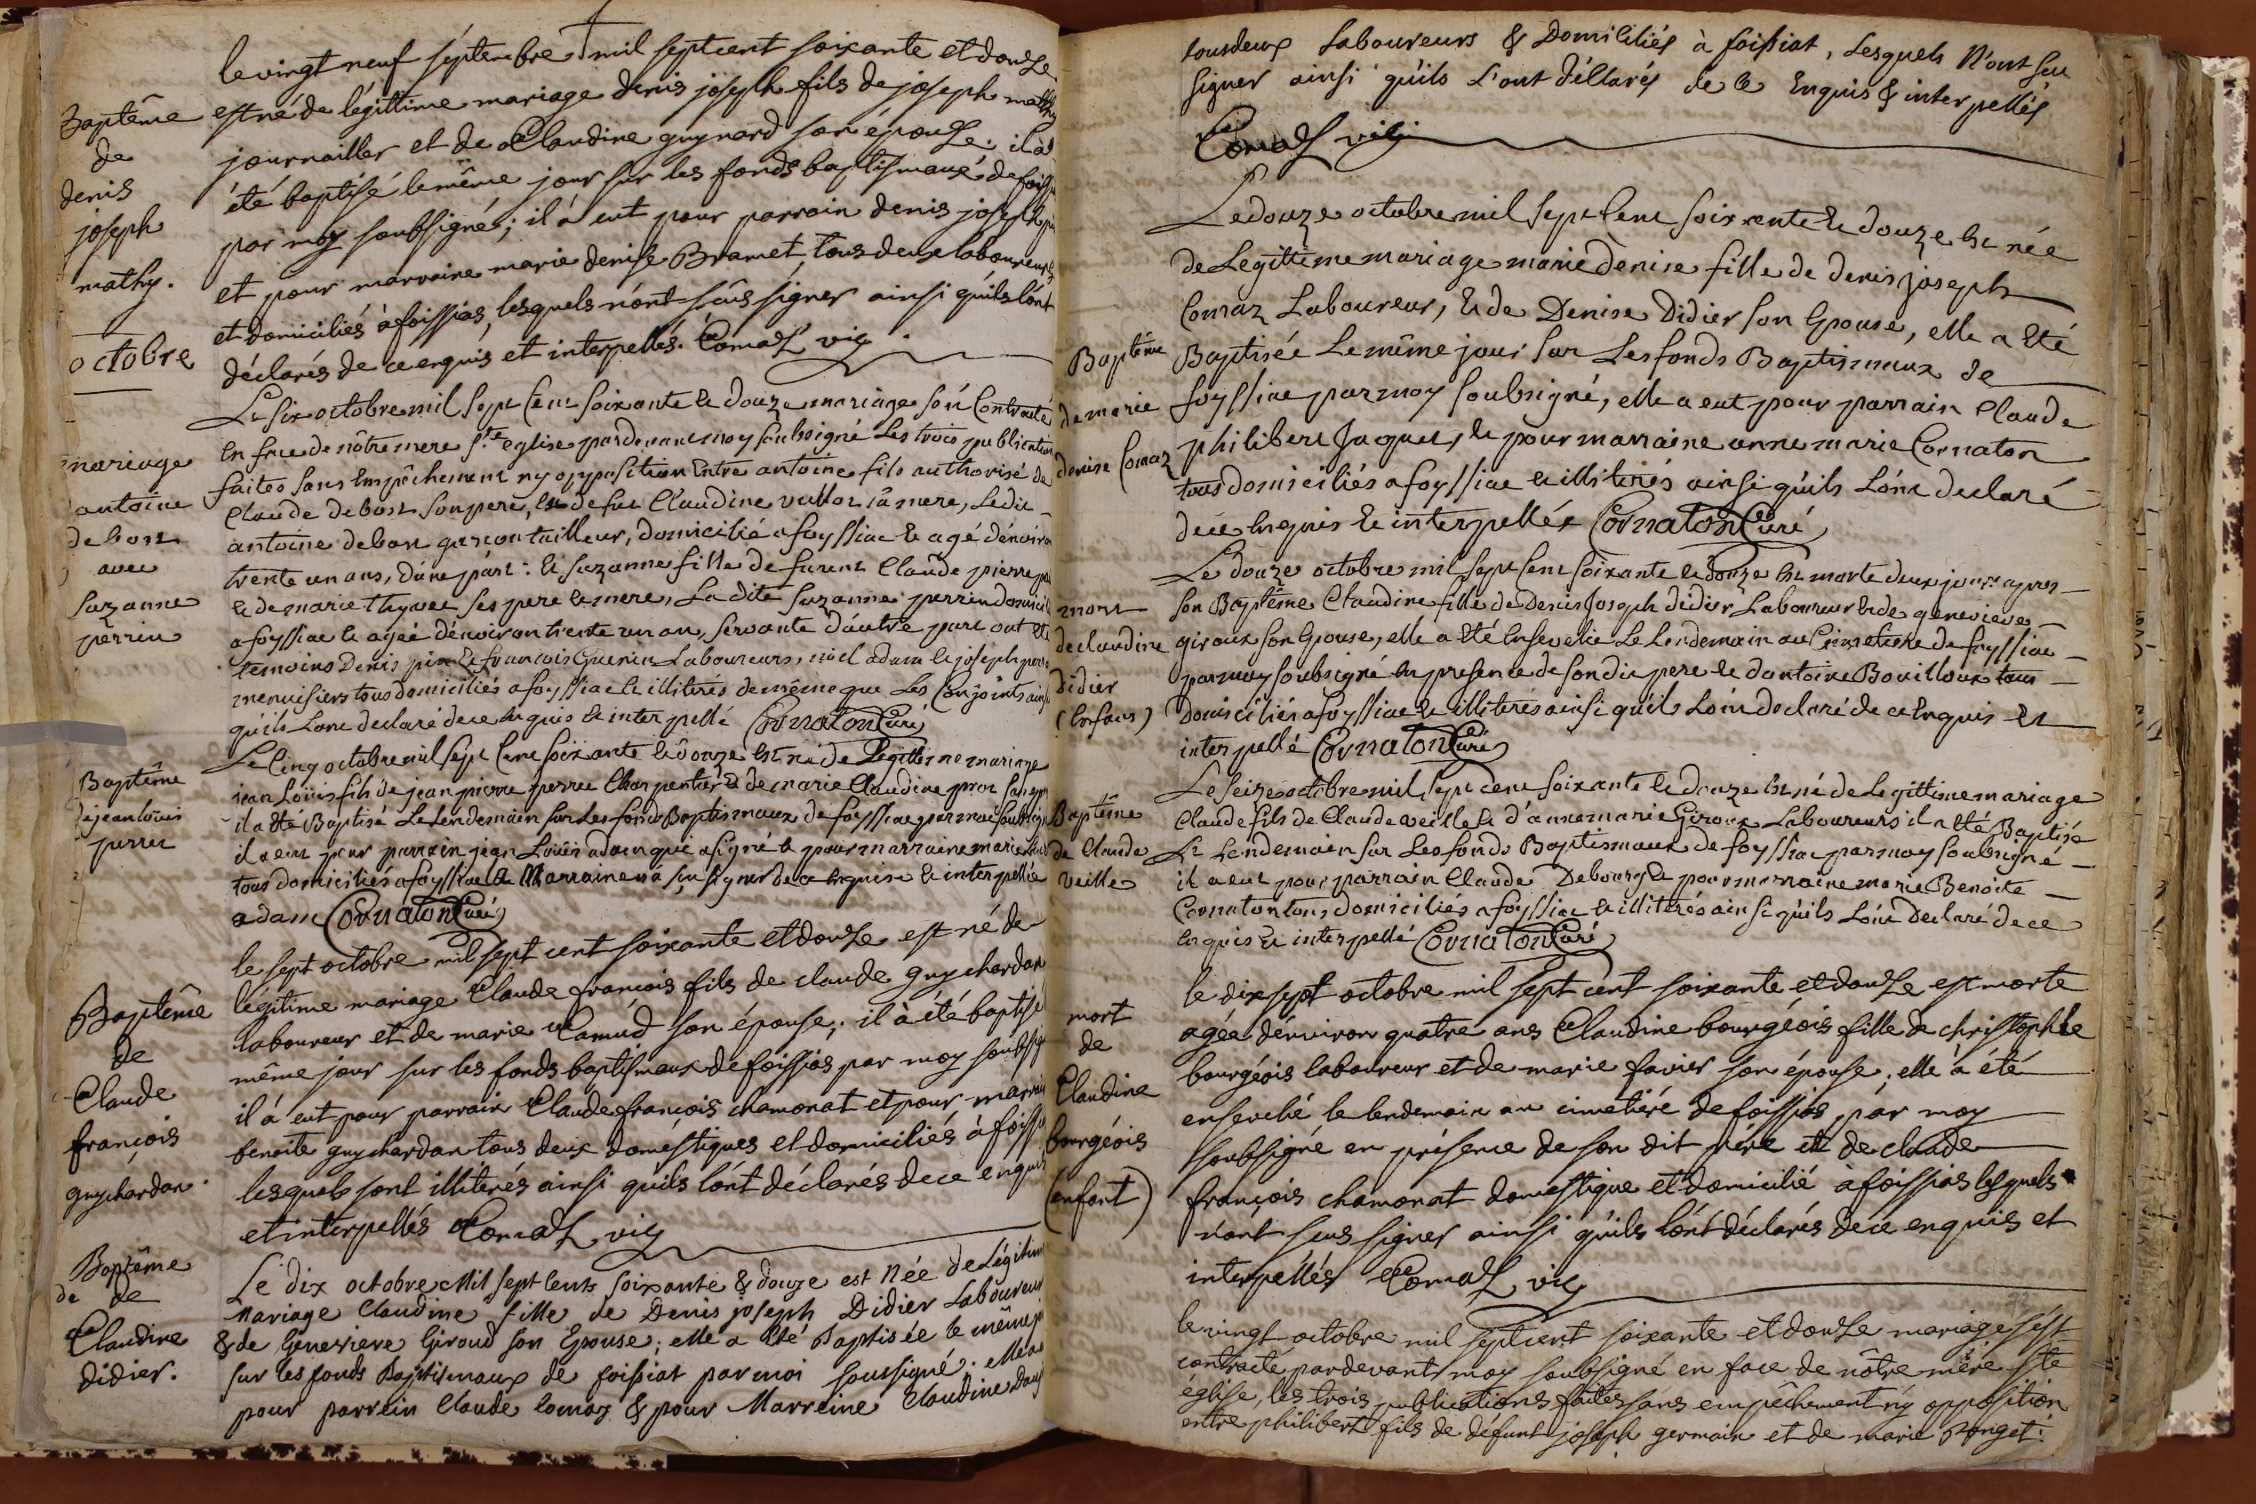 le vingt neuf séptembre mil septcent soixante et douse
Baptême
de
denis
joseph
mathy.
est né de légittime mariage denis joseph fils de joseph mathy
journailler et de Claudine guynard son épouse. il à
été baptisé le même jour sur les fonds baptismaux de foissi
par moy soubsigné; il à eut pour parrain denis joseph
et pour marraine marie denise Bramet, tous deux laboureurs
et domiciliés à foissias, lesquels n'ont scûs signer ainsi quils l'ont
déclarés de ce enquis et interpellés. Comas vic
octobre
mariage
antoine
debost
avec
suzanne
perrin
Le six octobre mil sept Cent soixante et douze mariage s'est Contracté
En face de nôtre mere Ste eglise pardevant moy soubsigné Les trois publications
faites sans Empêchement ny opposition Entre antoine fils authorisé de
Claude debost son pere, et de fut Claudine vuillot sa mere, Ledit
antoine debost garçon tailleur, domicilié a foyssiac et agé d'énviron
trente un ans, d'une part: et suzanne fille de furent Claude pierre
et de marie thyvet ses pere et mere, La dite suzanne perrin domicil
a foyssiac et agée d'énviron trente un an, servante d'autre part ont été
temoins Denis pin et francois Guerin Laboureurs, noel adam et joseph
menuisiers tous domiciliés a foyssiac et illiterés de même que Les Conjoints ainsi
qu'ils L'ont declaré de ce Enquis et interpellé Cornaton Curé
Baptême
de jean loüis
perret
Le Cinq octobre mil sept Cent soixante et douze Est né de Legittime mariage
jean Loüis fils de jean pierre perret Charpentier et de marie Claudine prot
il a Eté Baptisé Le Lendemain sur Les fonds Baptismaux de foyssiac par moi soubsig
il a eut pour parrain jean Loüis adam qui a signé et pour marraine marie
tous domiciliés a foyssiac La Marraine n'a sçu signer de ce Enquise et interpellée
adam Cornaton Curé
Baptême
de
Claude
françois
guychardan.
le sept octobre mil sept cent soixante et douse est né de
légitime mariage Claude françois fils de claude guychardan
laboureur et de marie Camud son épouse; il à été baptisé
même jour sur les fonds baptismaux de foissias par moy soubsig
il à eut pour parrain Claude françois chamonat et pour marrai
benoite guychardan tous deux doméstiques et domiciliés à foissi
lesquels sont illiterés ainsi quils l'ont déclarés de ce enquis
et interpellés Comas vic
Baptême
de de
Claudine
didier.
Le dix octobre Mil sept Cents soixante & douze est Née de Légitim
Mariage Claudine fille de Denis joseph Didier Laboureur
& de Genevieve Giroud son Epouse; elle a Eté Baptisée le même j
sur les fonds Baptismaux de foissiat par moi soussigné. elle a
pour parrein Claude Comaz & pour Marreine Claudine
tous deux Laboureurs & Domiciliés à foissiat, Lesquels N'ont scu
signer ainsi qu'ils L'ont Déclarés de ce Enquis & interpellés
Comas vic
Baptême
de marie
denise Comaz
Le douze octobre mil sept Cent soixante et douze Est née
de Legittime mariage marie denise fille de denis joseph
Comaz Laboureur, et de Denise Didier son Epouse, elle a Eté
Baptisée Le même jour sur Les fonds Baptismaux de
foyssiac par moy soubsigné, elle a eut pour parrain Claude
philibert Jaquet, et pour marraine anne marie Cornaton
tous domiciliés a foyssiac et illiterés ainsi qu'ils L'ont declaré
de ce Enquis et interpellés Cornaton Curé
mort
de claudine
didier
(Enfans)
Le douze octobre mil sept Cent soixante et douze Est morte deux jours apres
son Baptême Claudine fille de Denis Joseph didier Laboureur et de genevieve
giroux son Epouse, elle a Eté Ensevelie Le Lendemain au Cimetiere de foyssiac
par moy soubsigné En presence de son dit pere et d'antoine Bouilloux tous
Domiciliés a foyssiac et illiterés ainsi qu'ils L'ont declaré de ce Enquis et
interpellé Cornaton Curé
Baptême
de Claude
veille
Le seize octobre mil sept cent soixante et douze Est né de Legittime mariage
Claude fils de Claude veille et d'anne marie Giroux Laboureurs il a Eté Baptisé
Le Lendemain sur Les fonds Baptismaux de foyssiac par moy soubsigné
il a eut pour parrain Claude Debourg et pour marraine marie Benoite
Cornaton tous domiciliés a foyssiac et illiterés ainsi qu'ils L'ont declaré de ce
Enquis et interpellé Cornaton Curé
mort
de
Claudine
bourgéois
(enfant)
le dix sept octobre mil sept cent soixante et douse est morte
agée d'énviron quatre ans Claudine bourgéois fille de christophle
bourgéois laboureur et de marie favier son épouse; elle à été
ensevelié le lendemain au cimetiére de foissias par moy
soubsigné en présence de son dit pére et de claude
françois chamonat domestique et domicilié à foissias lesquels
n'ont scus signer ainsi quils l'ont déclarés de ce enquis et
interpellés Comas vic
le vingt octobre mil septcent soixante et douse mariage s'ést
contracté pardevant moy soubsigné en face de nôtre mére Ste
église, les trois publications faites sans empêchement n'y opposition
entre philibert fils de défunt joseph germain et de marie Ronget: